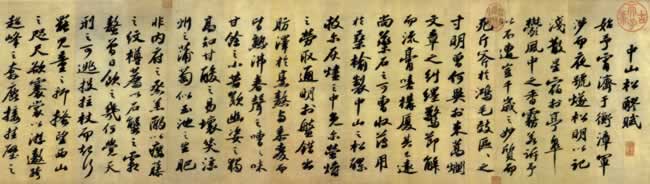 中山松醪賦
始予宵濟於衡漳軍
涉而夜號燧松明以記
淺散星宿於亭皋
鬱風中之香霧若訴予
以不遭豈千歲之妙質而
死斤斧於鴻毛效區區之
寸明曾何異於束蒿爛
文章之糾纏驚節解
而流膏嘻構廈其已遠
尚藥石之可曹收薄用
於桑榆製中山之松醪
救爾灰燼之中免爾螢爝
之勞取通明於盤錯出
肪澤於烹熬與黍麥而
皆熟沸舂聲之嘈嘈味
甘餘而小苦歎幽姿之獨
高知甘酸之易壞笑涼
州之蒲萄似玉池之生肥
非內府之烝羔酌以癭藤
之紋樽薦以石蟹之霜
螯曾日飲之幾何覺天
刑之可逃投拄杖而起行
罷兒童之抑搔望西山
之咫尺欲褰裳以游遨跨
超峰之奔鹿接挂壁之